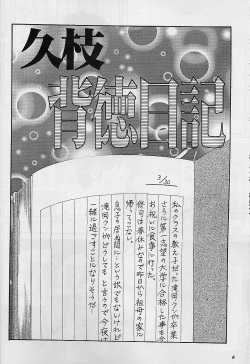 久枝
背徳日記
3/30
私のクラスの教え子だった滝岡クンが卒業
さらに第一志望の大学に合格した事も含
お祝いに食事に行った。
修司は春休みなので昨日から祖母の家に
帰ってこない。
息子の居ぬ間に…という訳でもないけれど
滝岡クンがどうしてもと言うので今夜は
一緒に過ごすことになりそうだ…
6